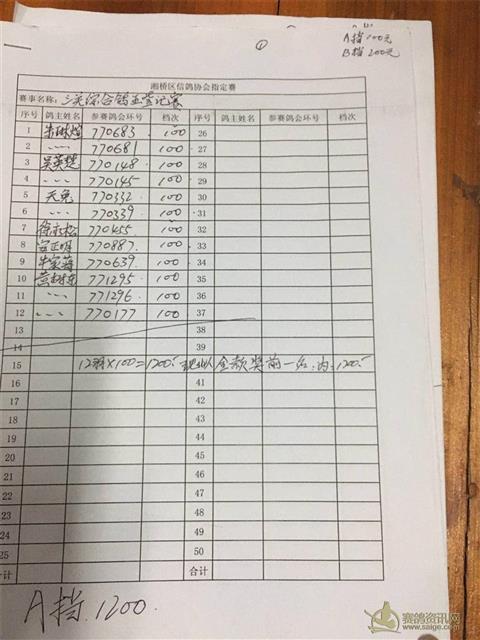 ①
A档100元
B档200元
湘桥区信鸽协会指定赛
赛事名称: 三关综合鸽王登记表
序号 鸽主姓名 参赛鸽会环号 档次 序号 鸽主姓名 参赛鸽会环号 档次
1 770683 100 26
2 〃 770681 100 27
3 吴英楚 770148 100 28
4 〃 770145 100 29
5 天兔 770332 100 30
6 〃 770339 100 31
7 徐永松 770455 100 32
8 正明 770887 100 33
9 770639 100 34
10 黄 771295 100 35
11 〃 771296 100 36
12 〃 770177 100 37
13 38
14 39
15 12羽×100=1200 金额奖前一名 1200
16 41
17 42
18 43
19 44
20 45
21 46
22 47
23 48
24 49
25 50
合计 合计
A档.1200.
赛鸽资讯网
www.saige.com